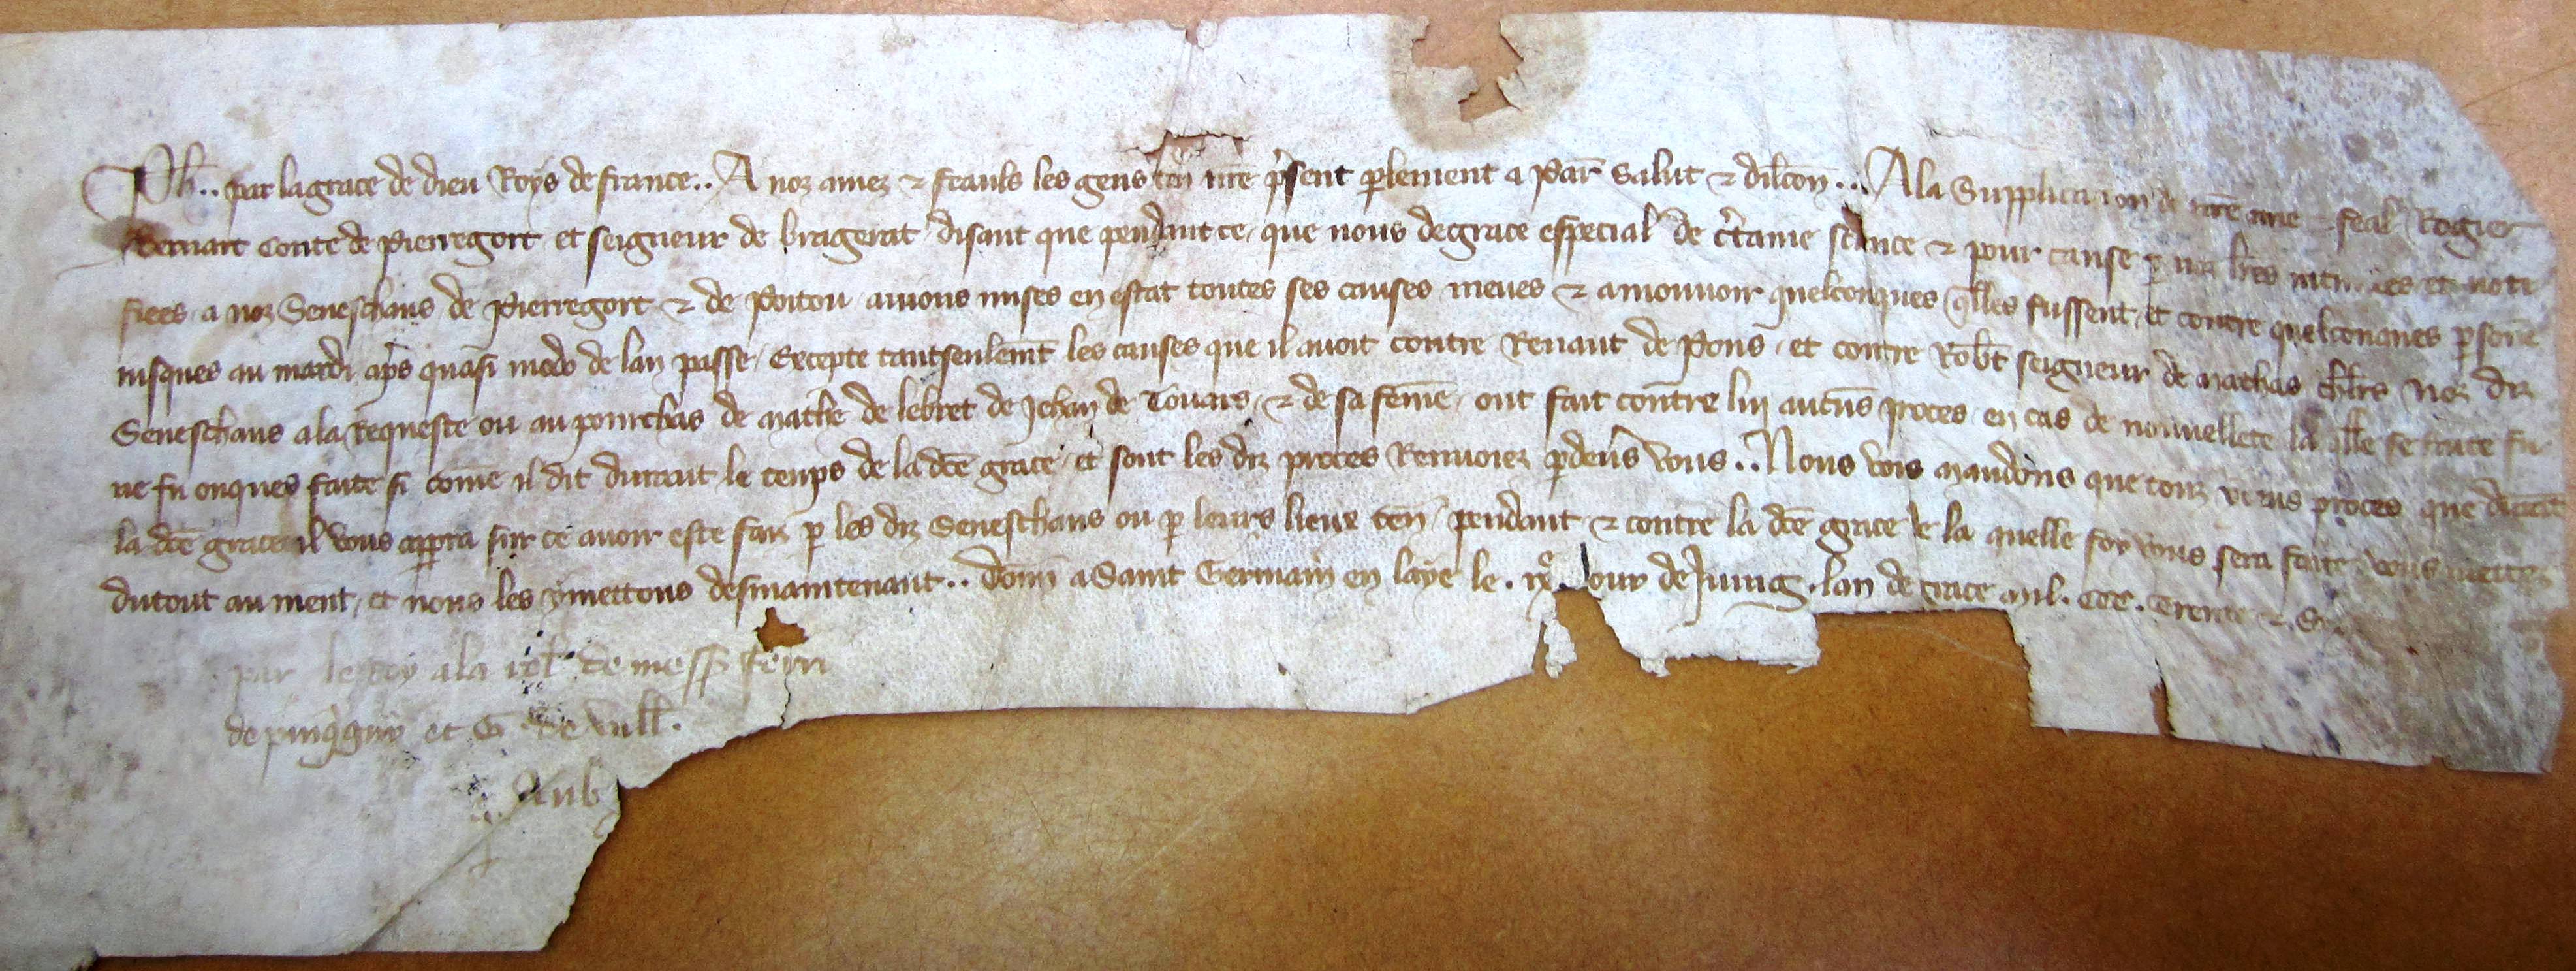 Ph̄.. par la grace de dieu Roys de france.. A noz amez ⁊ feauls les gens ten̄ nr̄e p̄sent ꝑlement a Par̄ Salut ⁊ dilc̄on.. A la Supplicacion de nr̄e ame ⁊ feal Rogier
Bernart conte de Pierregort et seigneur de bragerat disant que pendant ce que nous de grace especial de c̄taine science ⁊ pour cause ꝑ noz lr̄es et noti
fiees a noz Seneschaus de Pierregort ⁊ de Poitou auions mises en estat toutes ses causes meues ⁊ a mouuoir quelconques q̄lles fussent et contre quelconques ꝑsone
iusques au mardi ap̄s quasi modo de lan passe Excepte tantseulem̄t les causes que il auoit contre Renaut de Pons et contre Rob̄t seigneur de Mathas ch̄lrs noz diz
Seneschaus a la Requeste ou au pourchas de Mathe de lebret de Jehan de Touars ⁊ de sa fem̄e ont fait contre lui aucūs proces en cas de nouuellete la q̄lle se faite fu
ne fu onques faite si com̄e il dit durant le temps de la dc̄e grace et sont les diz proces Renuoiez ꝑdeūs vous.. Nous vous Mandons que touz proces que
la dc̄e grace il vous apꝑra sur ce auoir este faiz ꝑ les diz Seneschaus ou ꝑ leurs lieux ten̄ pendant ⁊ contre la dc̄e grace de la quelle foy vous sera faite vous mettez
du tout au nient et nous les y mettons des maintenant.. Don̄ a Saint Germain en laye le . ix͛. Jour de Juing . lan de grace Mil . ccc . Trente ⁊
par le Roy a la rel̄ de mess̄ ferri
de pinq̄gny et G de vill̄.
Aub